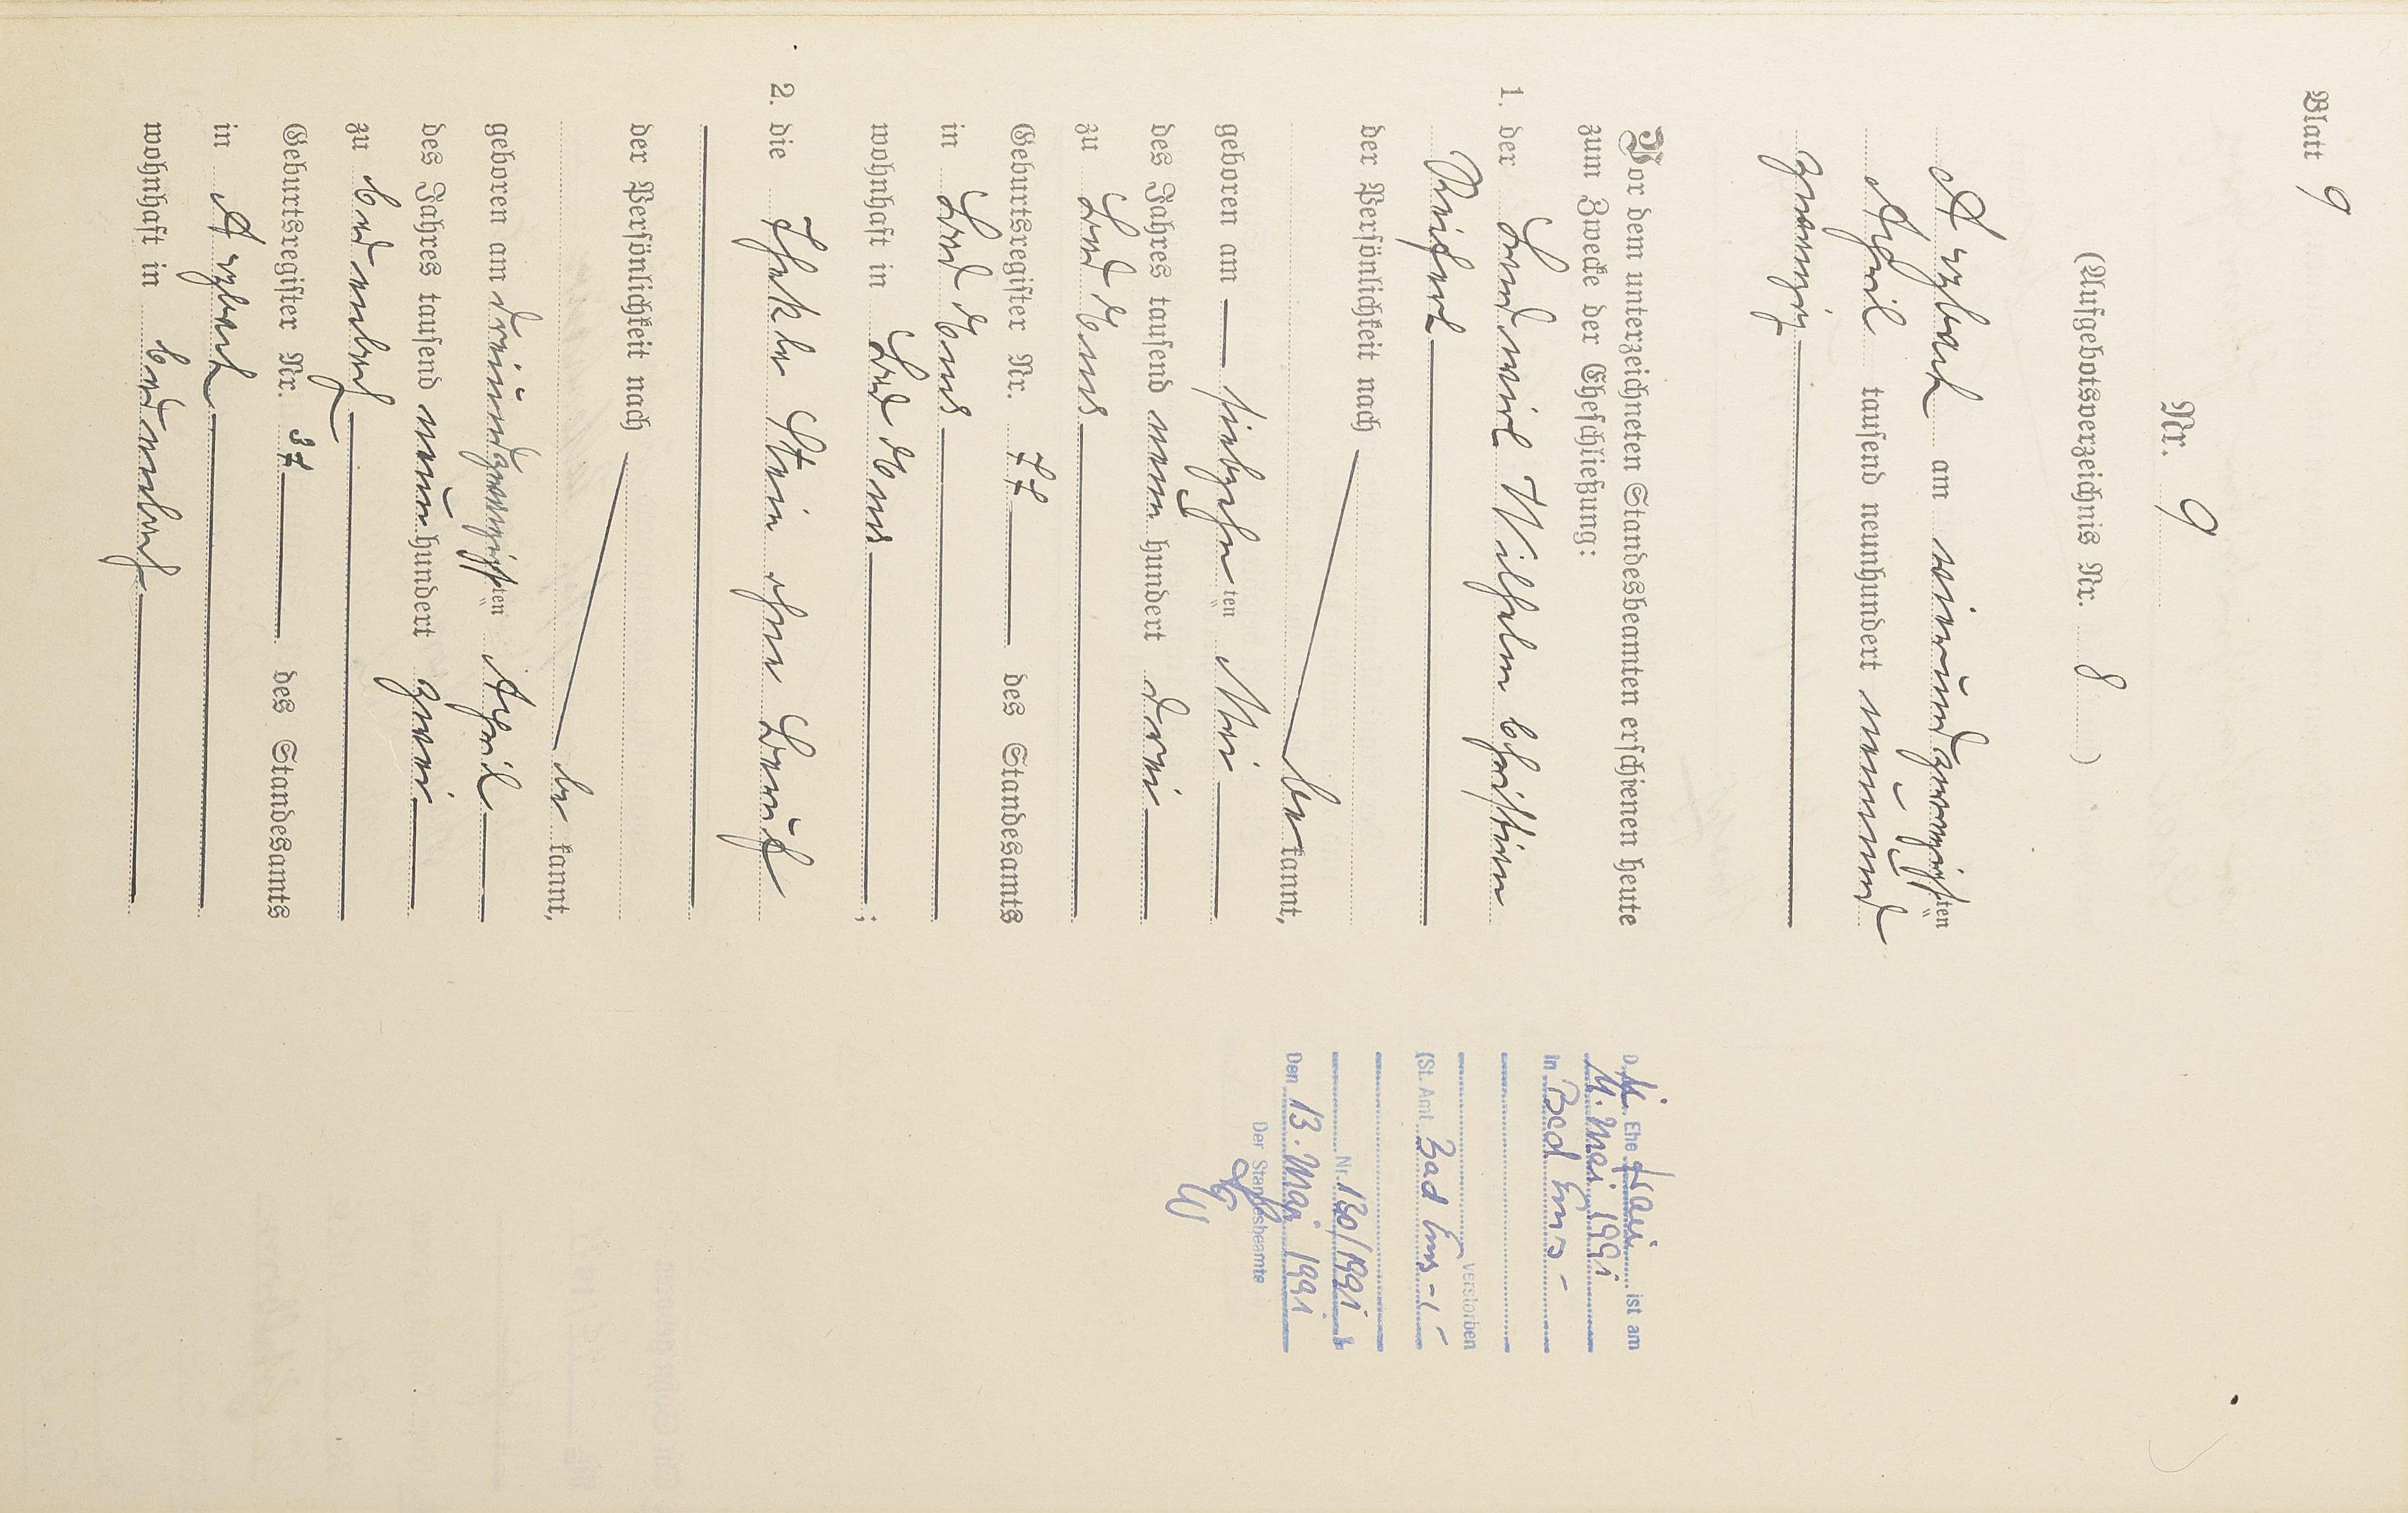 Blatt 9
Nr. 9
(Aufgebotsverzeichnis Nr. 8)
Arzbach am vierundzwanzigsten
April tausend neunhundert neunund
zwanzig
Vor dem unterzeichneten Standesbeamten erschienen heute
zum Zwecke der Eheschließung:
1. der Landwirt Wilhelm Christian
der Persönlichkeit nach
bekannt,
geboren am siebzehnten Mai
des Jahres tausend neun hundert drei
zu Bad Ems
Geburtsregister Nr. 77 des Standesamts
in Bad Ems
wohnhaft in Bad Ems ;
2. die Thekla Stein ohne Beruf
der Persönlichkeit nach
bekannt,
geboren am dreiundzwanzigsten April
des Jahres tausend neun hundert zwei
zu Cadenbach
Geburtsregister Nr. 37 des Standesamts
in Arzbach
wohnhaft in Cadenbach
Die Ehefrau ist am
11. Mai 1991
in Bad Ems -
verstorben
(St. Amt Bad Ems -
Nr. 130/1991
Den 13. Mai 1991
Der Standesbeamte